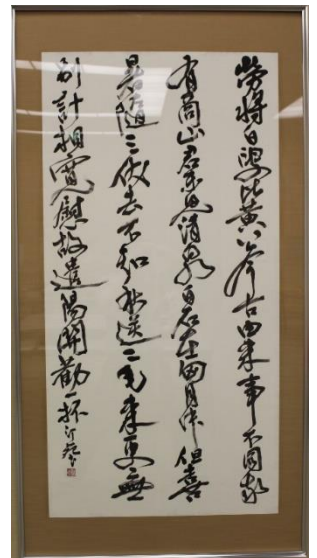 勞將白叟比黃公今古由來事不同我
有商山君未見清泉白石在胸中但喜
暑隨三伏去不知秋送二毛來更無
別計相寬慰故遣陽關勸一杯